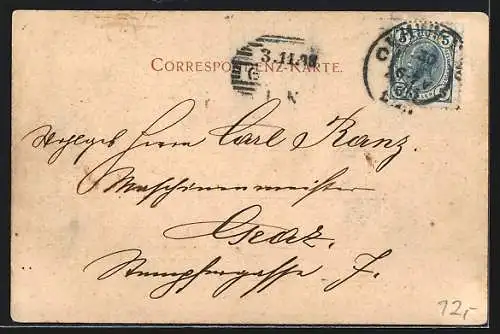 3.11.98
CORRESPONDENZ-KARTE.
5 5
Wohlgeb Herrn Carl Ranz.
Maschinenmeister
Graz.
Stempfergasse 7.
12,-